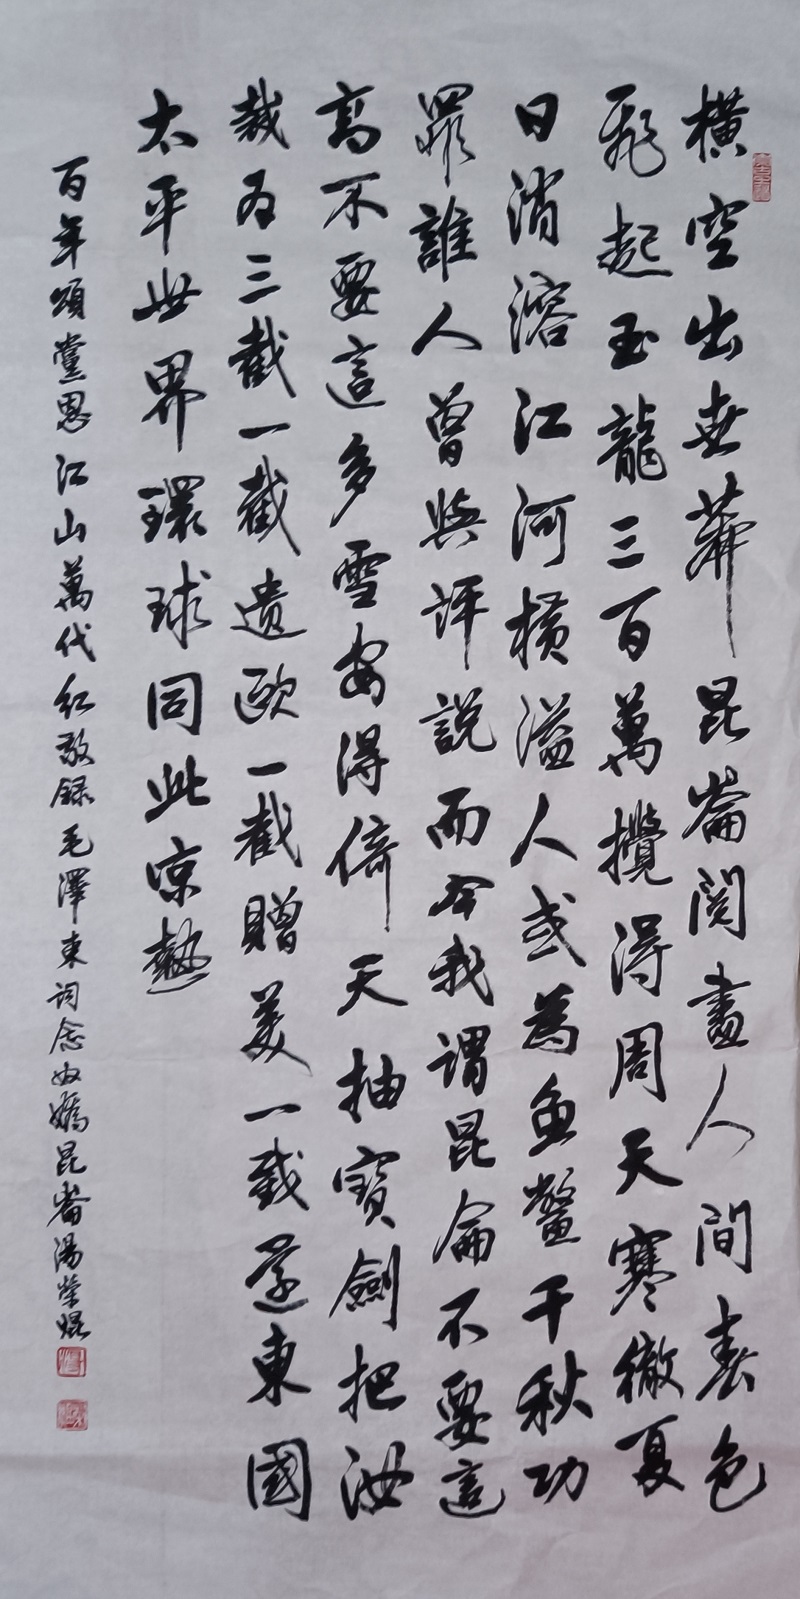 橫空出世莽昆崙閱盡人間春色
飛起玉龍三百萬攪得周天寒徹夏
日消溶江河橫溢人或為魚鱉千秋功
罪誰人曾與評說而今我謂昆侖不要這
高不要這多雪安得倚天抽寶劍把汝
裁为三截一截遗歐一截贈美一截還東國
太平世界環球同此涼熱
百年頌黨恩江山萬代紅敬録毛澤東词念奴嬌昆崙湯榮焜